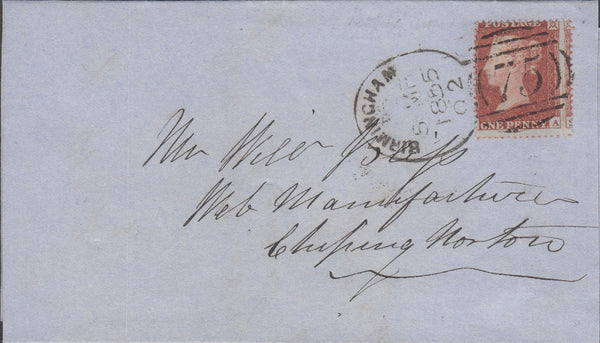 POSTAGE
75
ONE PENNY
A
BIRMINGHAM
5
1855
2
Mr Will Bliss
Web Manufacturer
Chiping Norton